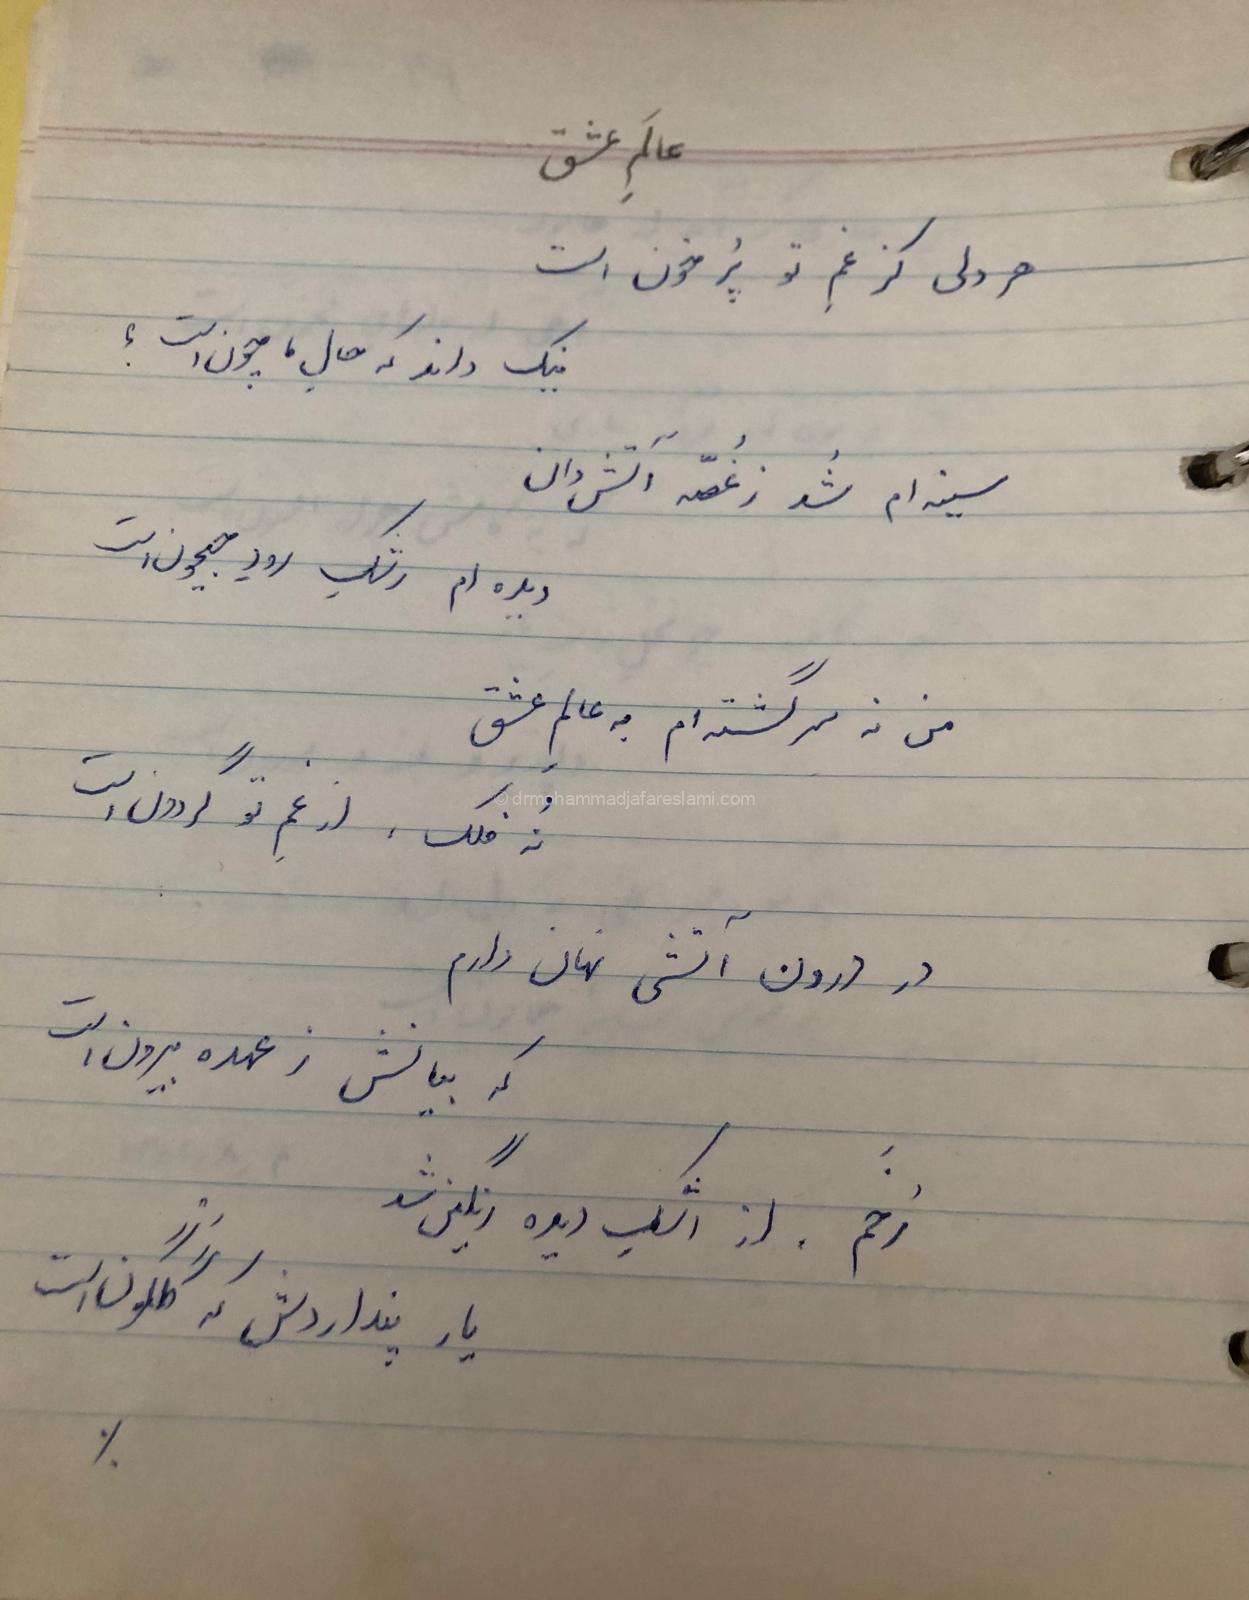 عالَمِ عشق
هر دلی کز غمِ تو پُر خون است
نیک داند که حالِ ما چون است ؟
سینه ام شُد ز غُصّه آتش دان
دیده ام رشکِ رودِ جیحون است
من نه سرگشته ام به عالمِ عشق
نُه فلک ، از غمِ تو گردون است
© drmohammadjafareslami.com
در درون آتشی نهان دارم
که بیانش ز عهده بیرون است
رُخَم ، از اشکِ دیده رنگین شد
یار پنداردش که گلگون است
٪